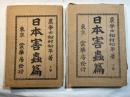 農學士松村松年著
日本害蟲篇
東京 裳華房發行
農學士松村松年著
日本害蟲篇
東京 裳華房發行